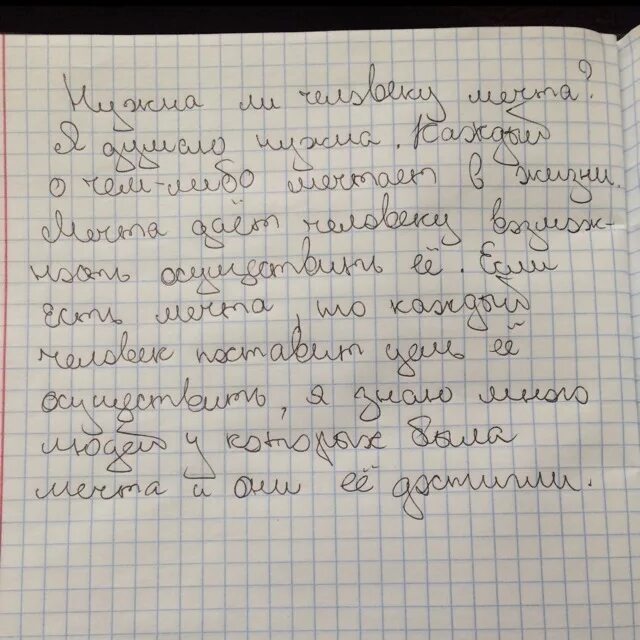 Нужна ли человеку мечта?
Я думаю нужна. Каждый
о чём-либо мечтает в жизни.
Мечта даёт человеку возмож-
ность осуществить её. Если
есть мечта, то каждый
человек поставит цель её
осуществить, я знаю много
людей у которых была
мечта и они её достигли.